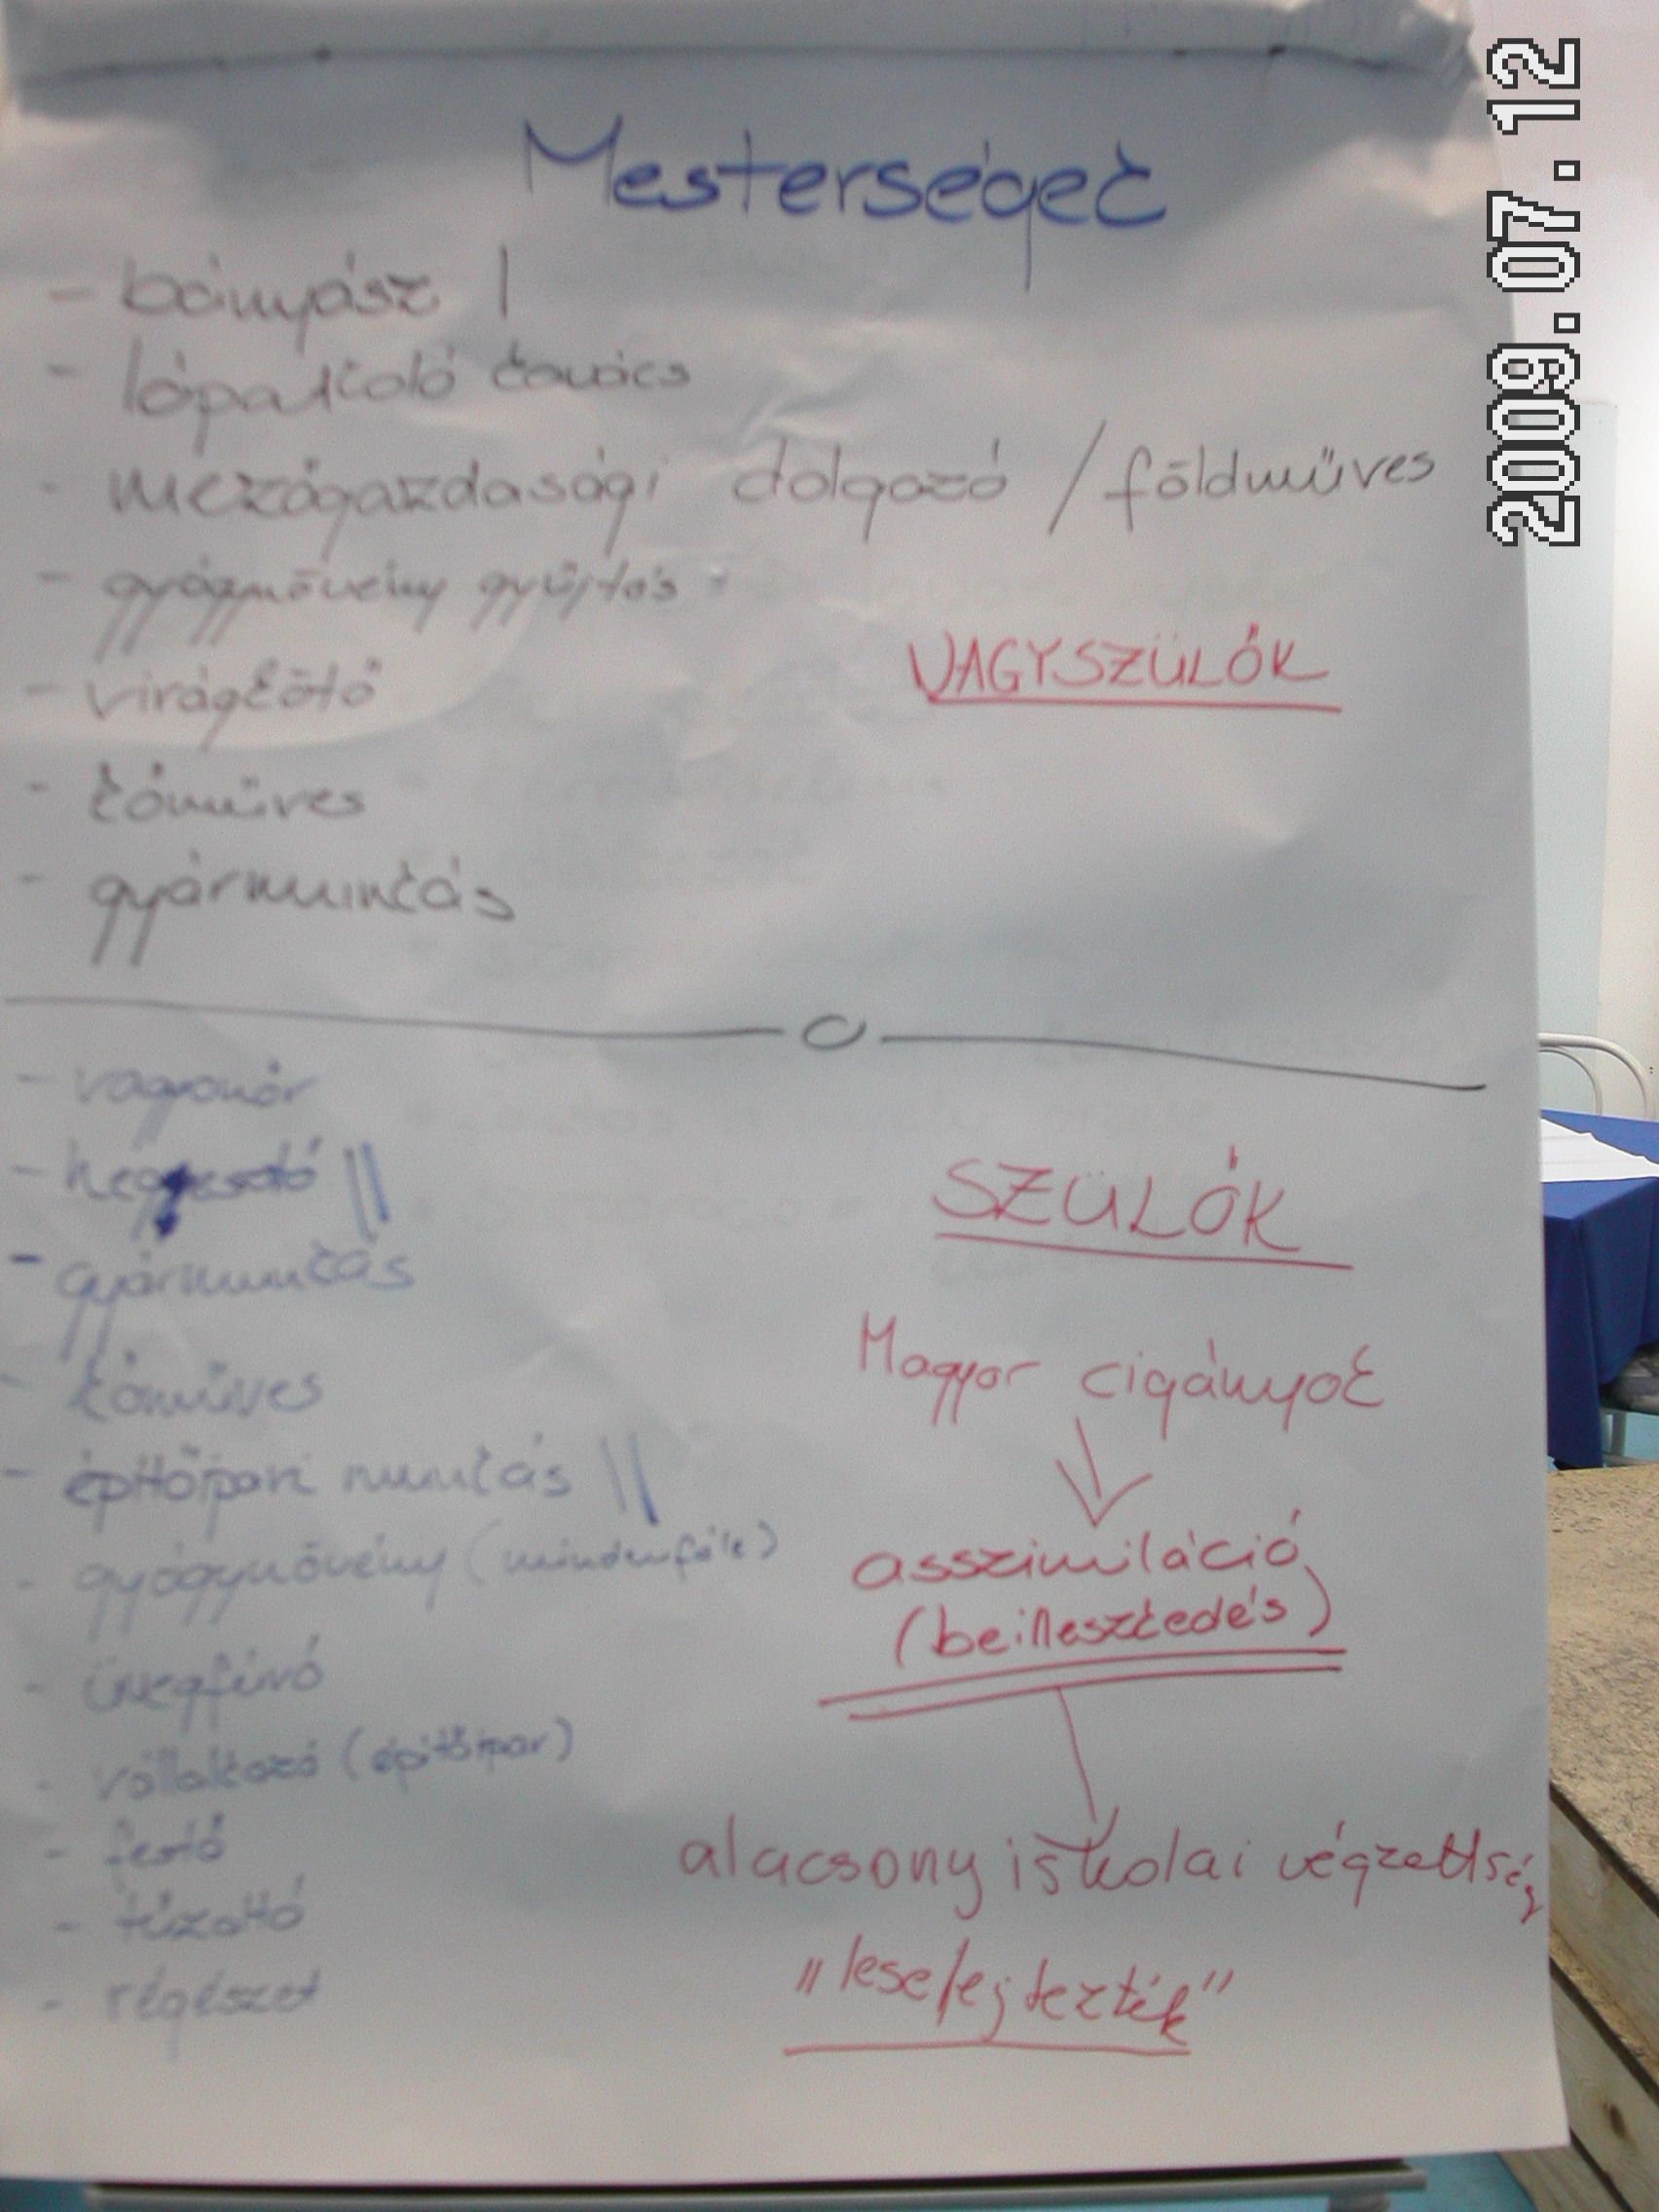 Mesterségek
- bányász |
- lópatkoló kovács
- mezőgazdasági dolgozó / földműves
- gyógynövény gyűjtés
- virágkötő
NAGYSZÜLŐK
- kőműves
- gyármunkás
- vagyonőr
- hegesztő ||
- gyármunkás
- kőműves
- építőipari munkás ||
- gyógynövény (mindenféle)
- üvegfúvó
- vállalkozó (építőipar)
- festő
- tűzoltó
- régészet
SZÜLŐK
Magyar cigányok
asszimiláció
(beilleszkedés)
alacsony iskolai végzettség
„leselejtezték”
2009.07.12